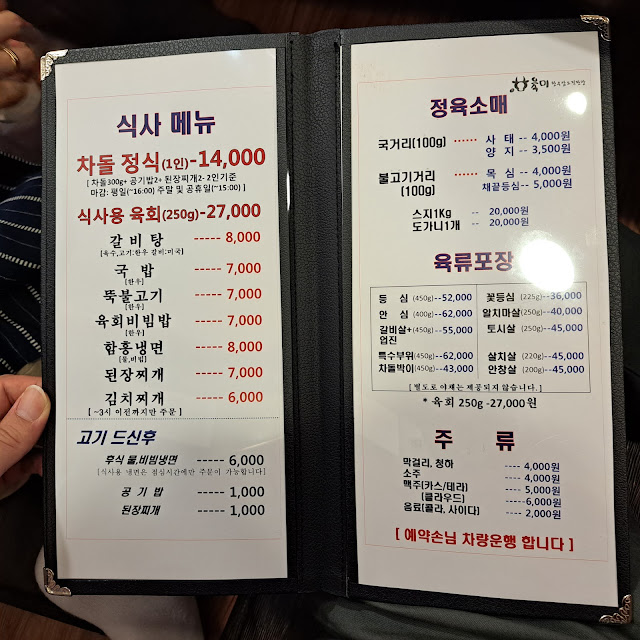 식사 메뉴
차돌 정식(1인)-14,000
[ 차돌300g+ 공기밥2+ 된장찌개2- 2인기준
마감: 평일(~16:00) 주말 및 공휴일(~15:00) ]
식사용 육회(250g)-27,000
갈 비 탕 ----- 8,000
[육수,고기:한우 갈비:미국]
국 밥 ----- 7,000
[한우]
뚝불고기 ----- 7,000
[한우]
육회비빔밥 ----- 7,000
[한우]
함흥냉면 ----- 8,000
[물,비빔]
된장찌개 ----- 7,000
김치찌개 ----- 6,000
[ ~3시 이전까지만 주문 ]
고기 드신후
후식 물,비빔냉면 ----- 6,000
[식사용 냉면은 점심시간에만 주문이 가능합니다]
공 기 밥 ----- 1,000
된장찌개 ----- 1,000
육미
정육소매
국거리(100g) ······ 사 태 -- 4,000원
양 지 -- 3,500원
불고기거리 ······ 목 심 -- 4,000원
(100g) 채끝등심 -- 5,000원
스지1Kg -- 20,000원
도가니1개 -- 20,000원
육류포장
등 심 (450g)--52,000
안 심 (400g)--62,000
갈비살+ (450g)--55,000
업진
특수부위 (450g)--62,000
차돌박이 (450g)--43,000
꽃등심 (225g)--36,000
알치마살 (250g)--40,000
토시살 (250g)--45,000
살치살 (220g)--45,000
안창살 (200g)--45,000
[ 별도로 야채는 제공되지 않습니다. ]
* 육회 250g -27,000원
주 류
막걸리, 청하 ---- 4,000원
소주 ---- 4,000원
맥주(카스/테라) ---- 5,000원
(클라우드) ----6,000원
음료(콜라, 사이다) ---- 2,000원
[ 예약손님 차량운행 합니다 ]